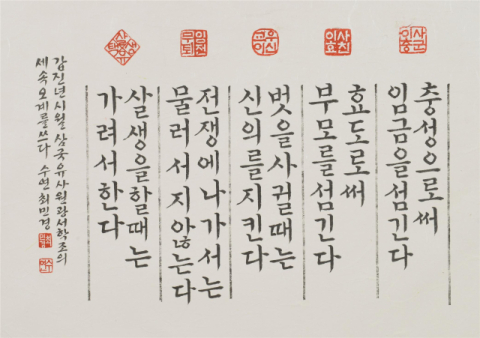 사군이충
충성으로써
임금을섬긴다
사친이효
효도로써
부모를섬긴다
교우이신
벗을사귈때는
신의를지킨다
임전무퇴
전쟁에나가서는
물러서지않는다
살생유택
살생을할때는
가려서한다
갑진년시월삼국유사원광서학조의
세속오계를쓰다 수연최민경